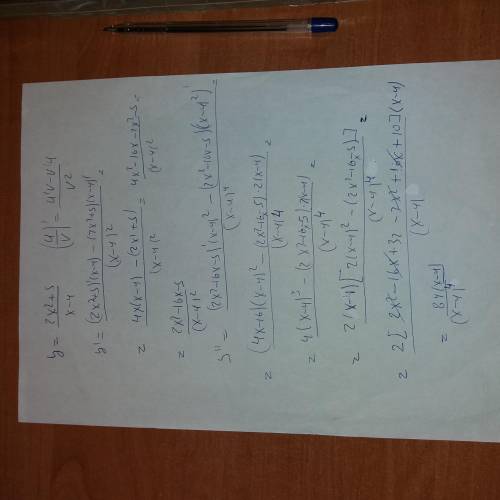 y = (2x²+5)/(x-4)   (u/v)' = (u'v-v'u)/v²
y' = ((2x²+5)'(x-4) - (2x²+5)(x-4)')/(x-4)² =
= (4x(x-4) - (2x²+5))/(x-4)² = (4x²-16x-2x²-5)/(x-4)² =
= (2x²-16x-5)/(x-4)²
y'' = ((2x²-16x-5)'(x-4)² - (2x²-16x-5)((x-4)²)')/(x-4)⁴ =
= ((4x-16)(x-4)² - (2x²-16x-5)·2(x-4))/(x-4)⁴ =
= (4(x-4)³ - (2x²-16x-5)·2(x-4))/(x-4)⁴ =
= 2(x-4)[2(x-4)² - (2x²-16x-5)]/(x-4)⁴ =
= 2[2x²-16x+32-2x²+16x+10](x-4)/(x-4)
= 84(x-4)/(x-4)⁴